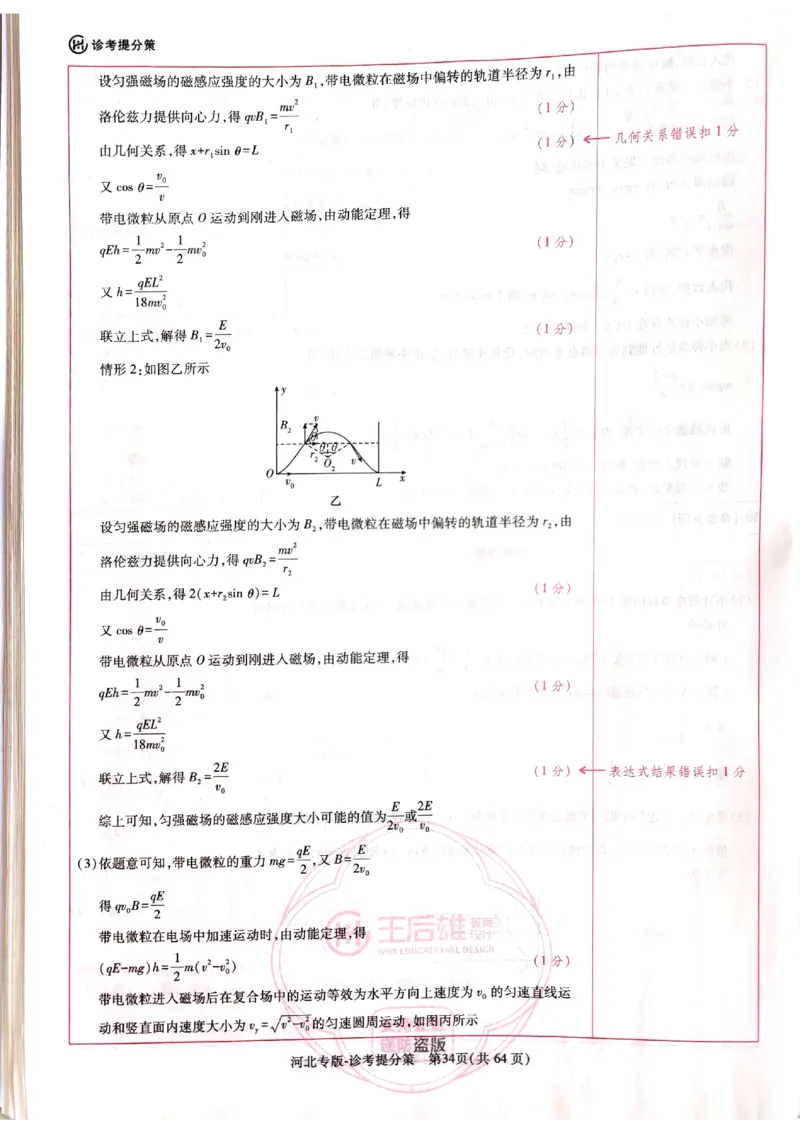 诊考提分策
设匀强磁场的磁感应强度的大小为 B₁,带电微粒在磁场中偏转的轨道半径为 r₁,由
洛伦兹力提供向心力,得 qvB₁=mv²/r₁ (1分)
由几何关系,得 x+r₁sin θ=L (1分) ← 几何关系错误扣1分
又 cos θ=v₀/v
带电微粒从原点 O 运动到刚进入磁场,由动能定理,得
qEh=1/2mv²-1/2mv₀² (1分)
又 h=qEL²/18mv₀²
联立上式,解得 B₁=E/2v₀ (1分)
情形2:如图乙所示
y
B₂
v
θ
θ θ
r₂
O₂
v
O
v₀
L
x
乙
设匀强磁场的磁感应强度的大小为 B₂,带电微粒在磁场中偏转的轨道半径为 r₂,由
洛伦兹力提供向心力,得 qvB₂=mv²/r₂
由几何关系,得 2(x+r₂sin θ)=L (1分)
又 cos θ=v₀/v
带电微粒从原点 O 运动到刚进入磁场,由动能定理,得
qEh=1/2mv²-1/2mv₀² (1分)
又 h=qEL²/18mv₀²
联立上式,解得 B₂=2E/v₀ (1分) ← 表达式结果错误扣1分
综上可知,匀强磁场的磁感应强度大小可能的值为E/2v₀或2E/v₀
(3)依题意可知,带电微粒的重力 mg=qE/2,又 B=E/2v₀
得 qv₀B=qE/2
带电微粒在电场中加速运动时,由动能定理,得
(qE-mg)h=1/2m(v²-v₀²) (1分)
王后雄 教育设计
WHX EDUCATIONAL DESIGN
带电微粒进入磁场后在复合场中的运动等效为水平方向上速度为 v₀ 的匀速直线运
动和竖直面内速度大小为 vᵧ=√v²-v₀²的匀速圆周运动,如图丙所示
谨防盗版
河北专版-诊考提分策 第34页(共64页)